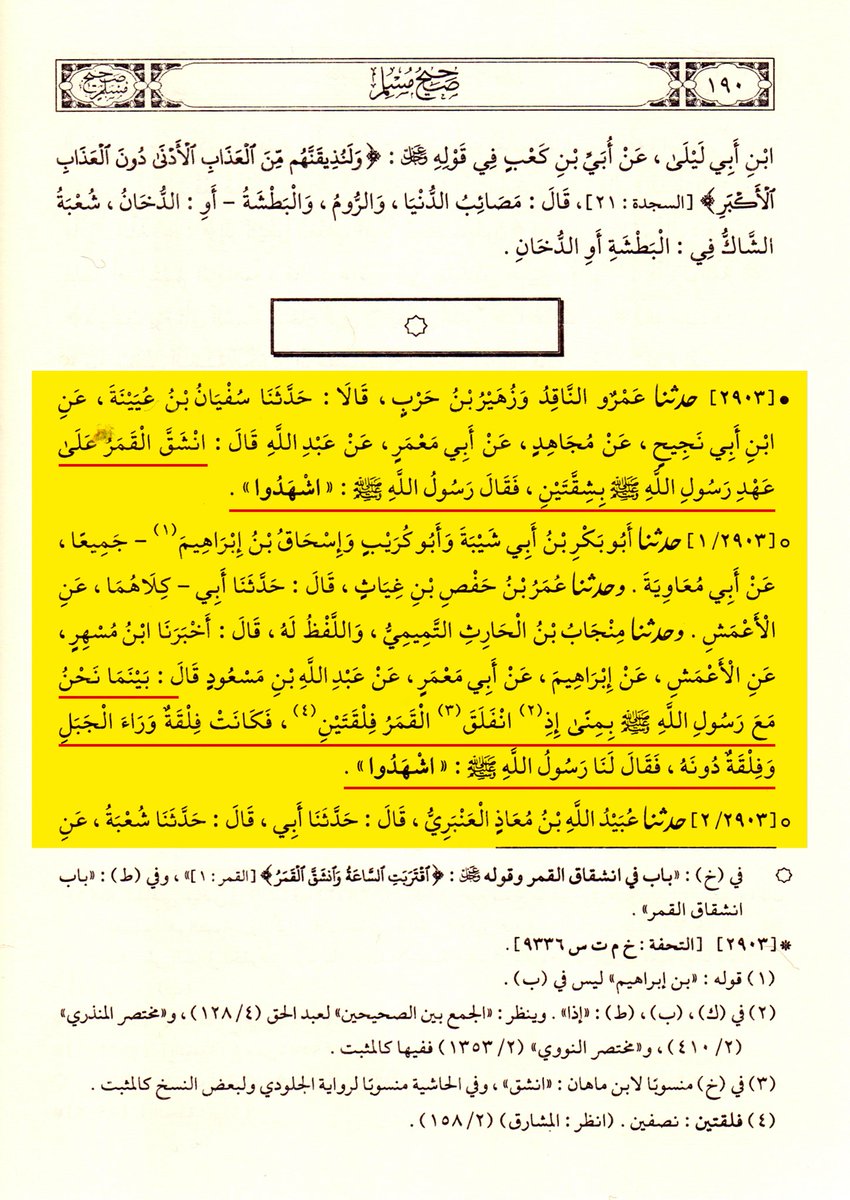 ١٩٠
صحيح مسلم
صحيح مسلم
ابْنِ أَبِي لَيْلَى ، عَنْ أُبَيِّ بْنِ كَعْبٍ فِي قَوْلِهِ ﷿ : ﴿ وَلَنُذِيقَنَّهُم مِّنَ ٱلْعَذَابِ ٱلْأَدْنَىٰ دُونَ ٱلْعَذَابِ
ٱلْأَكْبَرِ﴾ [السجدة : ٢١] ، قَالَ : مَصَائِبُ الدُّنْيَا ، وَالرُّومُ ، وَالْبَطْشَةُ - أَوِ : الدُّخَانُ ، شُعْبَةُ
الشَّاكُّ فِي : الْبَطْشَةِ أَوِ الدُّخَانِ .
• [٢٩٠٣] حدثنا عَمْرٌو النَّاقِدُ وَزُهَيْرُ بْنُ حَرْبٍ ، قَالَا : حَدَّثَنَا سُفْيَانُ بْنُ عُيَيْنَةَ ، عَنِ
ابْنِ أَبِي نَجِيحٍ ، عَنْ مُجَاهِدٍ ، عَنْ أَبِي مَعْمَرٍ ، عَنْ عَبْدِ اللَّهِ قَالَ : انْشَقَّ الْقَمَرُ عَلَى
عَهْدِ رَسُولِ اللَّهِ ﷺ بِشِقَّتَيْنِ ، فَقَالَ رَسُولُ اللَّهِ ﷺ : « اشْهَدُوا » .
○ [٢٩٠٣/ ١] حدثنا أَبُو بَكْرِ بْنُ أَبِي شَيْبَةَ وَأَبُو كُرَيْبٍ وَإِسْحَاقُ بْنُ إِبْرَاهِيمَ (١) - جَمِيعًا ،
عَنْ أَبِي مُعَاوِيَةَ . وحدثنا عُمَرُ بْنُ حَفْصِ بْنِ غِيَاثٍ ، قَالَ : حَدَّثَنَا أَبِي - كِلَاهُمَا ، عَنِ
الْأَعْمَشِ . وحدثنا مِنْجَابُ بْنُ الْحَارِثِ التَّمِيمِيُّ ، وَاللَّفْظُ لَهُ ، قَالَ : أَخْبَرَنَا ابْنُ مُسْهِرٍ ،
عَنِ الْأَعْمَشِ ، عَنْ إِبْرَاهِيمَ ، عَنْ أَبِي مَعْمَرٍ ، عَنْ عَبْدِ اللَّهِ بْنِ مَسْعُودٍ قَالَ : بَيْنَمَا نَحْنُ
مَعَ رَسُولِ اللَّهِ ﷺ بِمِنًى إِذِ (٢) انْفَلَقَ (٣) الْقَمَرُ فِلْقَتَيْنِ (٤) ، فَكَانَتْ فِلْقَةٌ وَرَاءَ الْجَبَلِ
وَفِلْقَةٌ دُونَهُ ، فَقَالَ لَنَا رَسُولُ اللَّهِ ﷺ : « اشْهَدُوا » .
○ [٢٩٠٣/ ٢] حدثنا عُبَيْدُ اللَّهِ بْنُ مُعَاذٍ الْعَنْبَرِيُّ ، قَالَ : حَدَّثَنَا أَبِي ، قَالَ : حَدَّثَنَا شُعْبَةُ ، عَنِ
۞ في (خ) : «باب في انشقاق القمر وقوله ﷿ : ﴿ ٱقْتَرَبَتِ ٱلسَّاعَةُ وَٱنشَقَّ ٱلْقَمَرُ﴾ [القمر : ١]» ، وفي (ط) : «باب
انشقاق القمر» .
* [٢٩٠٣] [التحفة : خ م ت س ٩٣٣٦] .
(١) قوله : «بن إبراهيم» ليس في (ب) .
(٢) في (ك) ، (ب) ، (ط) : «إذا» . وينظر : «الجمع بين الصحيحين» لعبد الحق (٤/ ١٢٨) ، و«مختصر المنذري»
(٢/ ٤١٠) ، و«مختصر النووي» (٢/ ١٣٥٣) ففيها كالمثبت .
(٣) في (خ) منسوبًا لابن ماهان : «انشق» ، وفي الحاشية منسوبًا لرواية الجلودي ولبعض النسخ كالمثبت .
(٤) فلقتين : نصفين . (انظر : المشارق) (٢/ ١٥٨) .